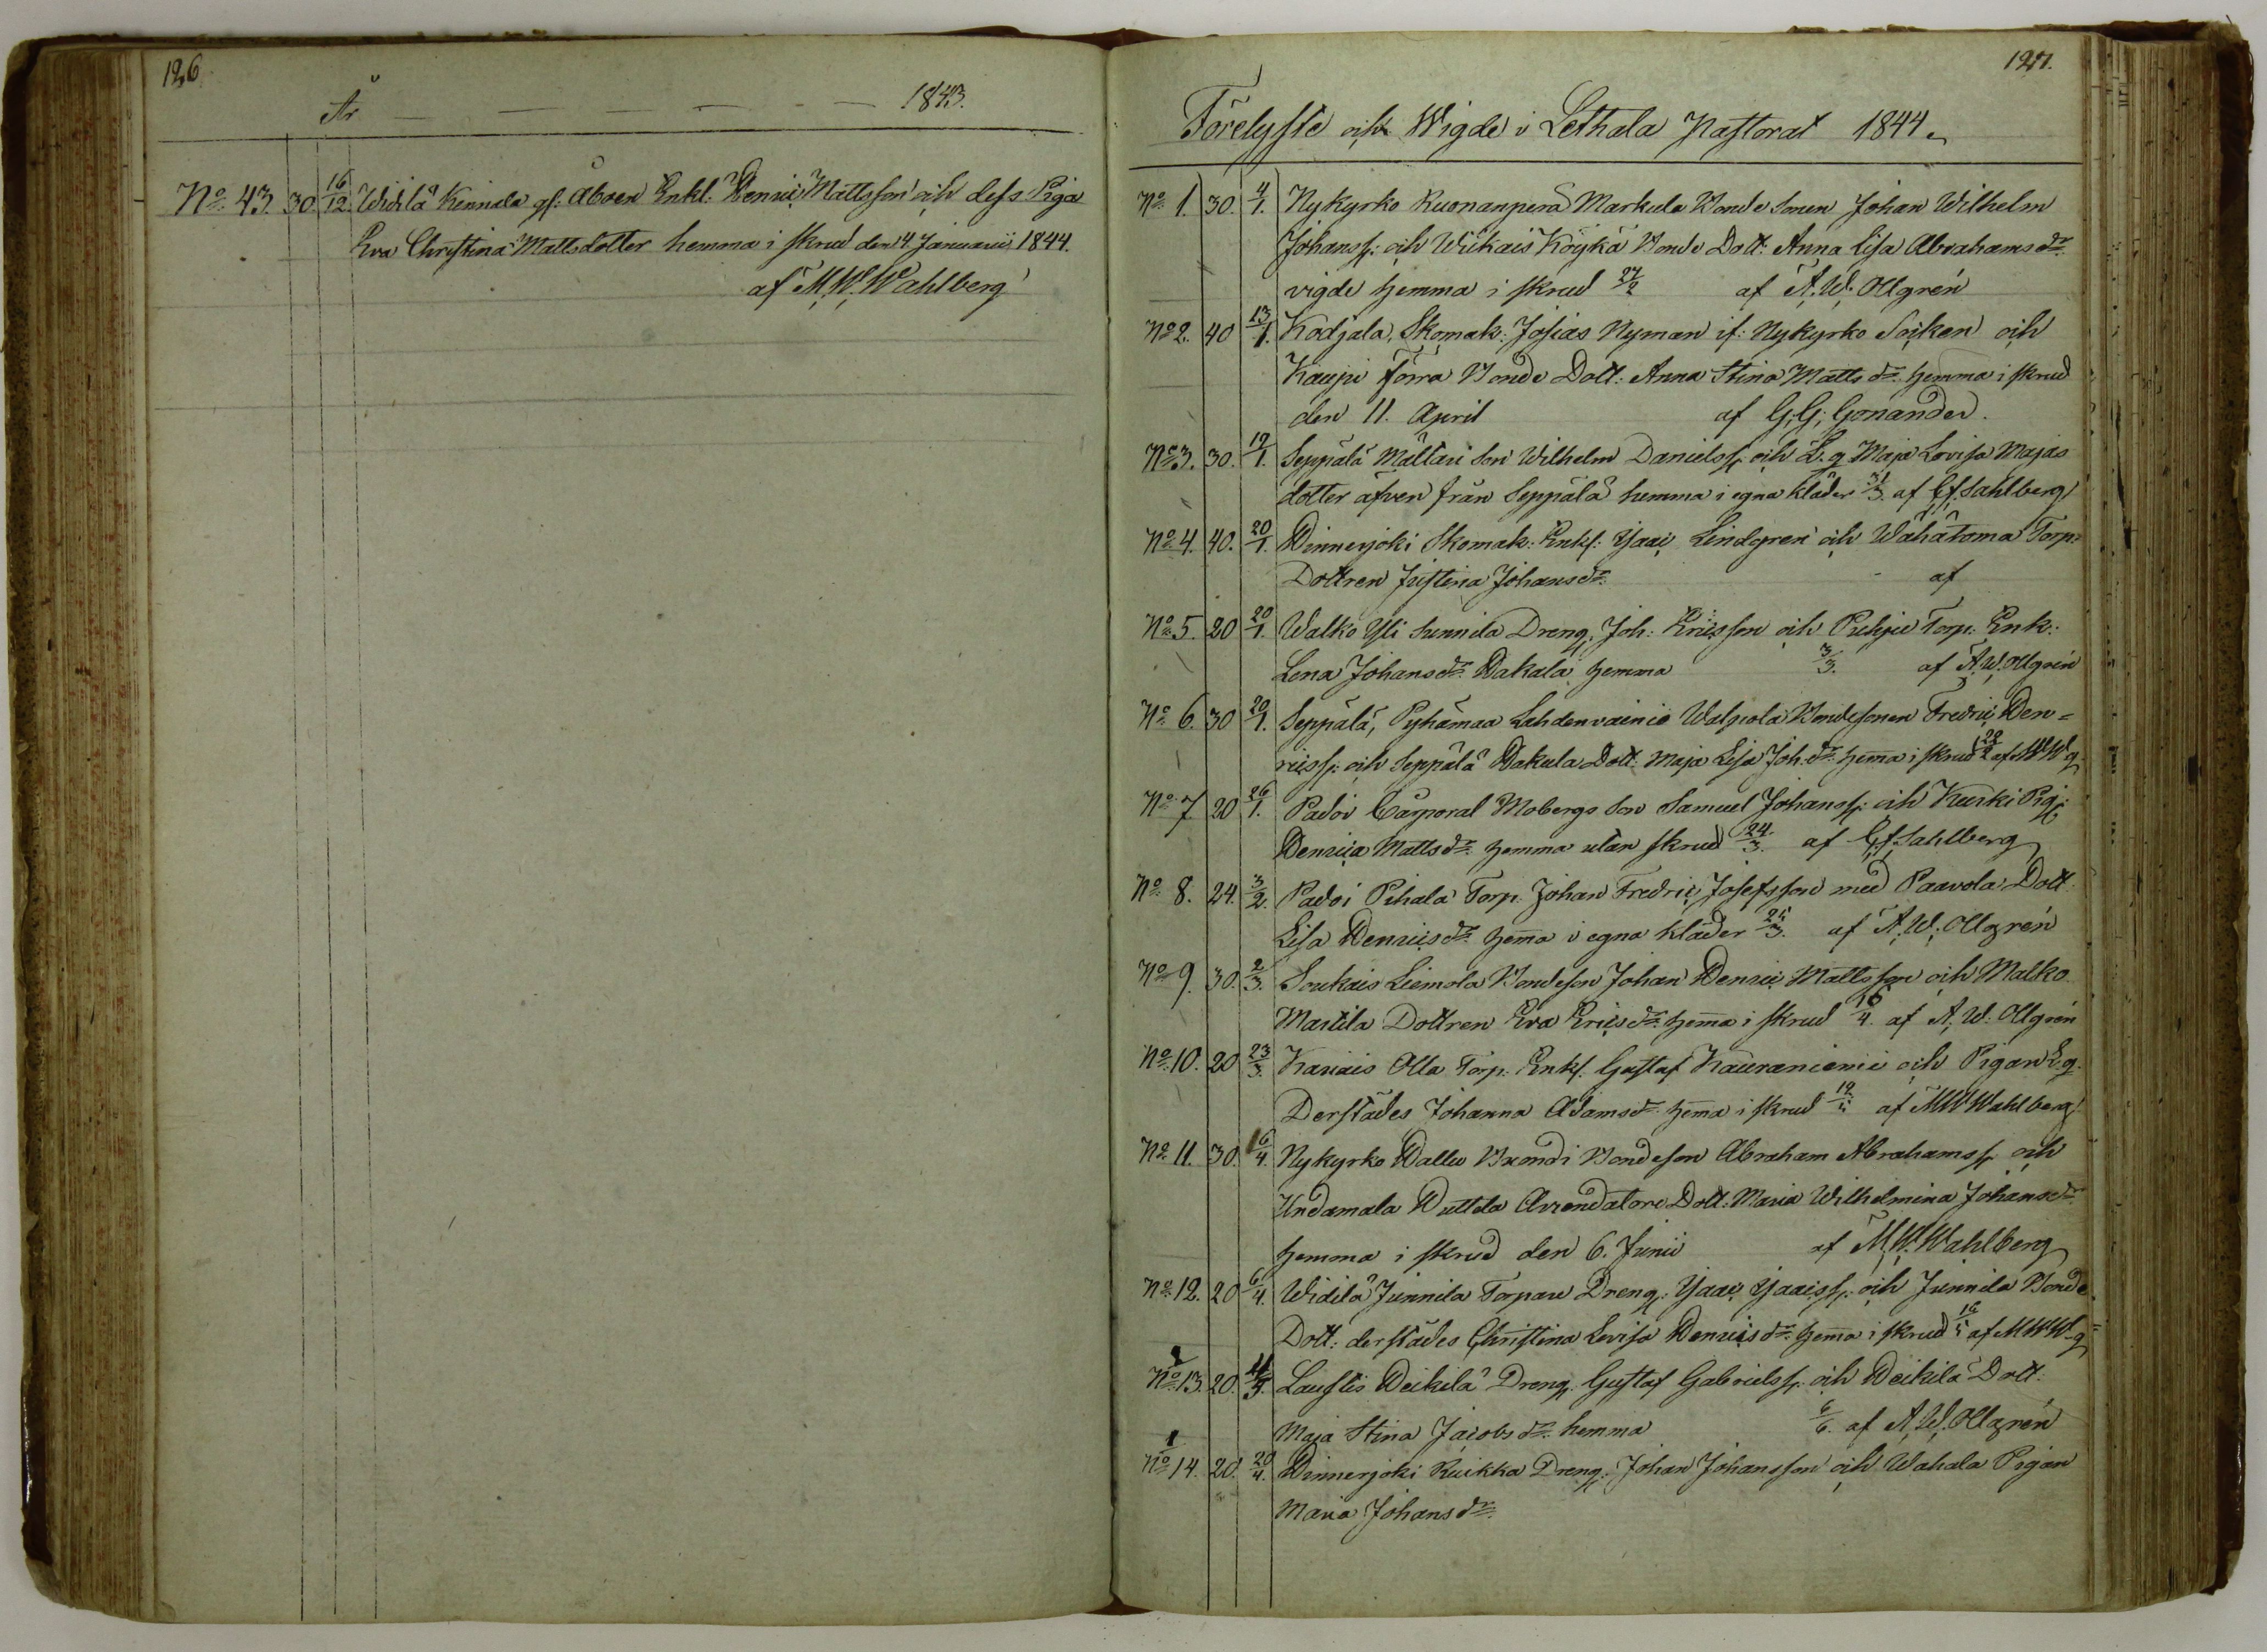 126
År 1843.
No. 43. 30. 16/12. Widilä Kinnala gf: Åboen Enkl: Henric Mattsson och dess Piga
Eva Christina Mattsdotter hemma i skrud den 4 Januarii 1844.
af M. W. Wahlberg
127.
Förelyste och Wigde i Lethala Pastorat 1844.
No. 1. 30. 4/1. Nykyrko Ruonanperä Markula Bonde Sonen Johan Wilhelm
Johanss: och Wiikais Köykä Bonde Dott: Anna Lisa Abrahamsdr.
vigde hemma i skrud 27/2 af A. W. Ollgrén
No 2. 40 13/1. Kodjala, Skomak: Josias Nyman if: Nykyrko Socken och
Kaupi Förra Bonde Dott: Anna Stina Mattsdr. hemma i skrud
den 11. April af G. G. Gonander.
No 3. 30. 19/1. Seppälä Mältäri Son Wilhelm Danielss. och L. q Maja Lovisa Majas
dotter äfven från Seppälä hemma i egna kläder af C. f. Sahlberg
No. 4. 40. 20/1. Hinnerjoki Skomak: Enkl: Isaac Lindgren och Wähätoma Torp:
Dottren Justina Johansdr. af
No. 5. 20 20/1. Walko Yli Sunnila Dreng: Joh: Ericsson och Puhju Torp: Enk:
Lena Johansdr. Hakala hemma 3/3. af A. W. Ollgrén
No. 6. 30 20/1. Seppälä, Pyhämaa Lahdenvainio Walpola Bondesonen Fredric Hen=
ricss: och Seppälä Hakula Dott: Maja Lisa Joh:dr. hema i skrud af MWWg
No. 7. 20 26/1. Padoi Corporal Mobergs Son Samuel Johanss: och Kurki Pig:
Henrica Mattsdr. hemma utan skrud 24/3. af C. f. Sahlberg
No. 8. 24. 3/2. Padoi Pihala Torp: Johan Fredric Josefsson med Paavola Dott:
Lisa Henricsdr. hema i egna kläder 25/3. af A. W. Ollgrén
No 9. 30. 2/3. Soukais Liemola Bondeson Johan Henric Mattsson och Malko
Martila Dottren Eva Ericsdr. hema i skrud 16/4. af A. W. Ollgrén
No. 10. 20 23/3. Kariais Olla Torp: Enkl: Gustaf Kauraniemi och Pigan L.q.
Derstädes Johanna Adamsdr. hema i skrud af MW Wahlberg
No. 11. 30. 6/4. Nykyrko Hallu Brondi Bondeson Abraham Abrahamss. och
Undamala Huttila Arrendators Dott: Maria Wilhelmina Johansdr.
hemma i skrud den 6. Junii af M. W. Wahlberg
No. 12. 20 6/4. Widilä Junnila Torpare Dreng: Isaac Isaacss: och Junnila Bonde
Dott: derstädes Christina Lovisa Henricsdr. hema i skrud af MWW=g
No. 13. 20. Laustis Heikilä Dreng: Gustaf Gabrielss: och Heikilä Dott:
Maja Stina Jacobsdr. hemma 6/6. af A. W. Ollgrén
No. 14. 20. 20/4. Hinnerjoki Kuikka Dreng: Johan Johansson och Wahala Pigan
Maria Johansdr.